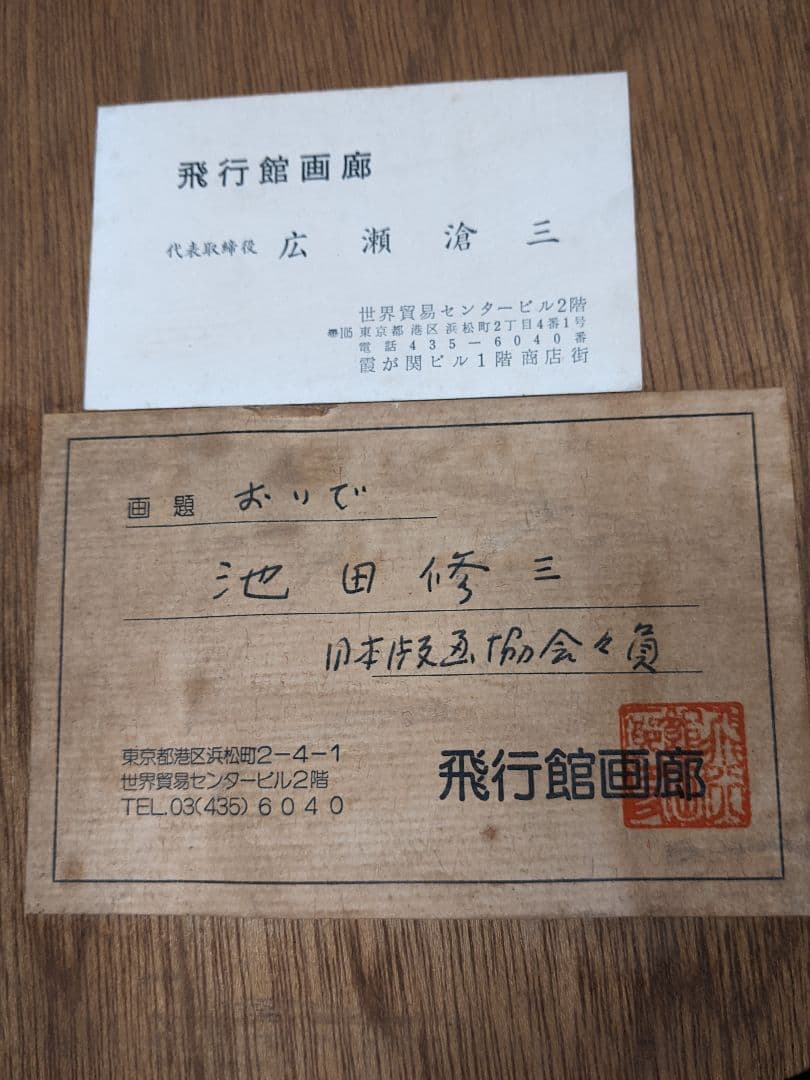 飛行館画廊
代表取締役 広瀬滄三
世界貿易センタービル2階
〠105 東京都港区浜松町2丁目4番1号
電話435-6040番
霞が関ビル1階商店街
画題 おいで
池田修三
日本版画協会々員
東京都港区浜松町2-4-1
世界貿易センタービル2階
TEL.03(435)6040
飛行館画廊